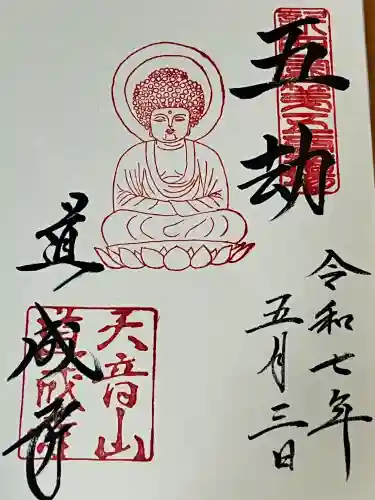 五劫
令和七年
五月三日
道成庵
天音山
道成庵